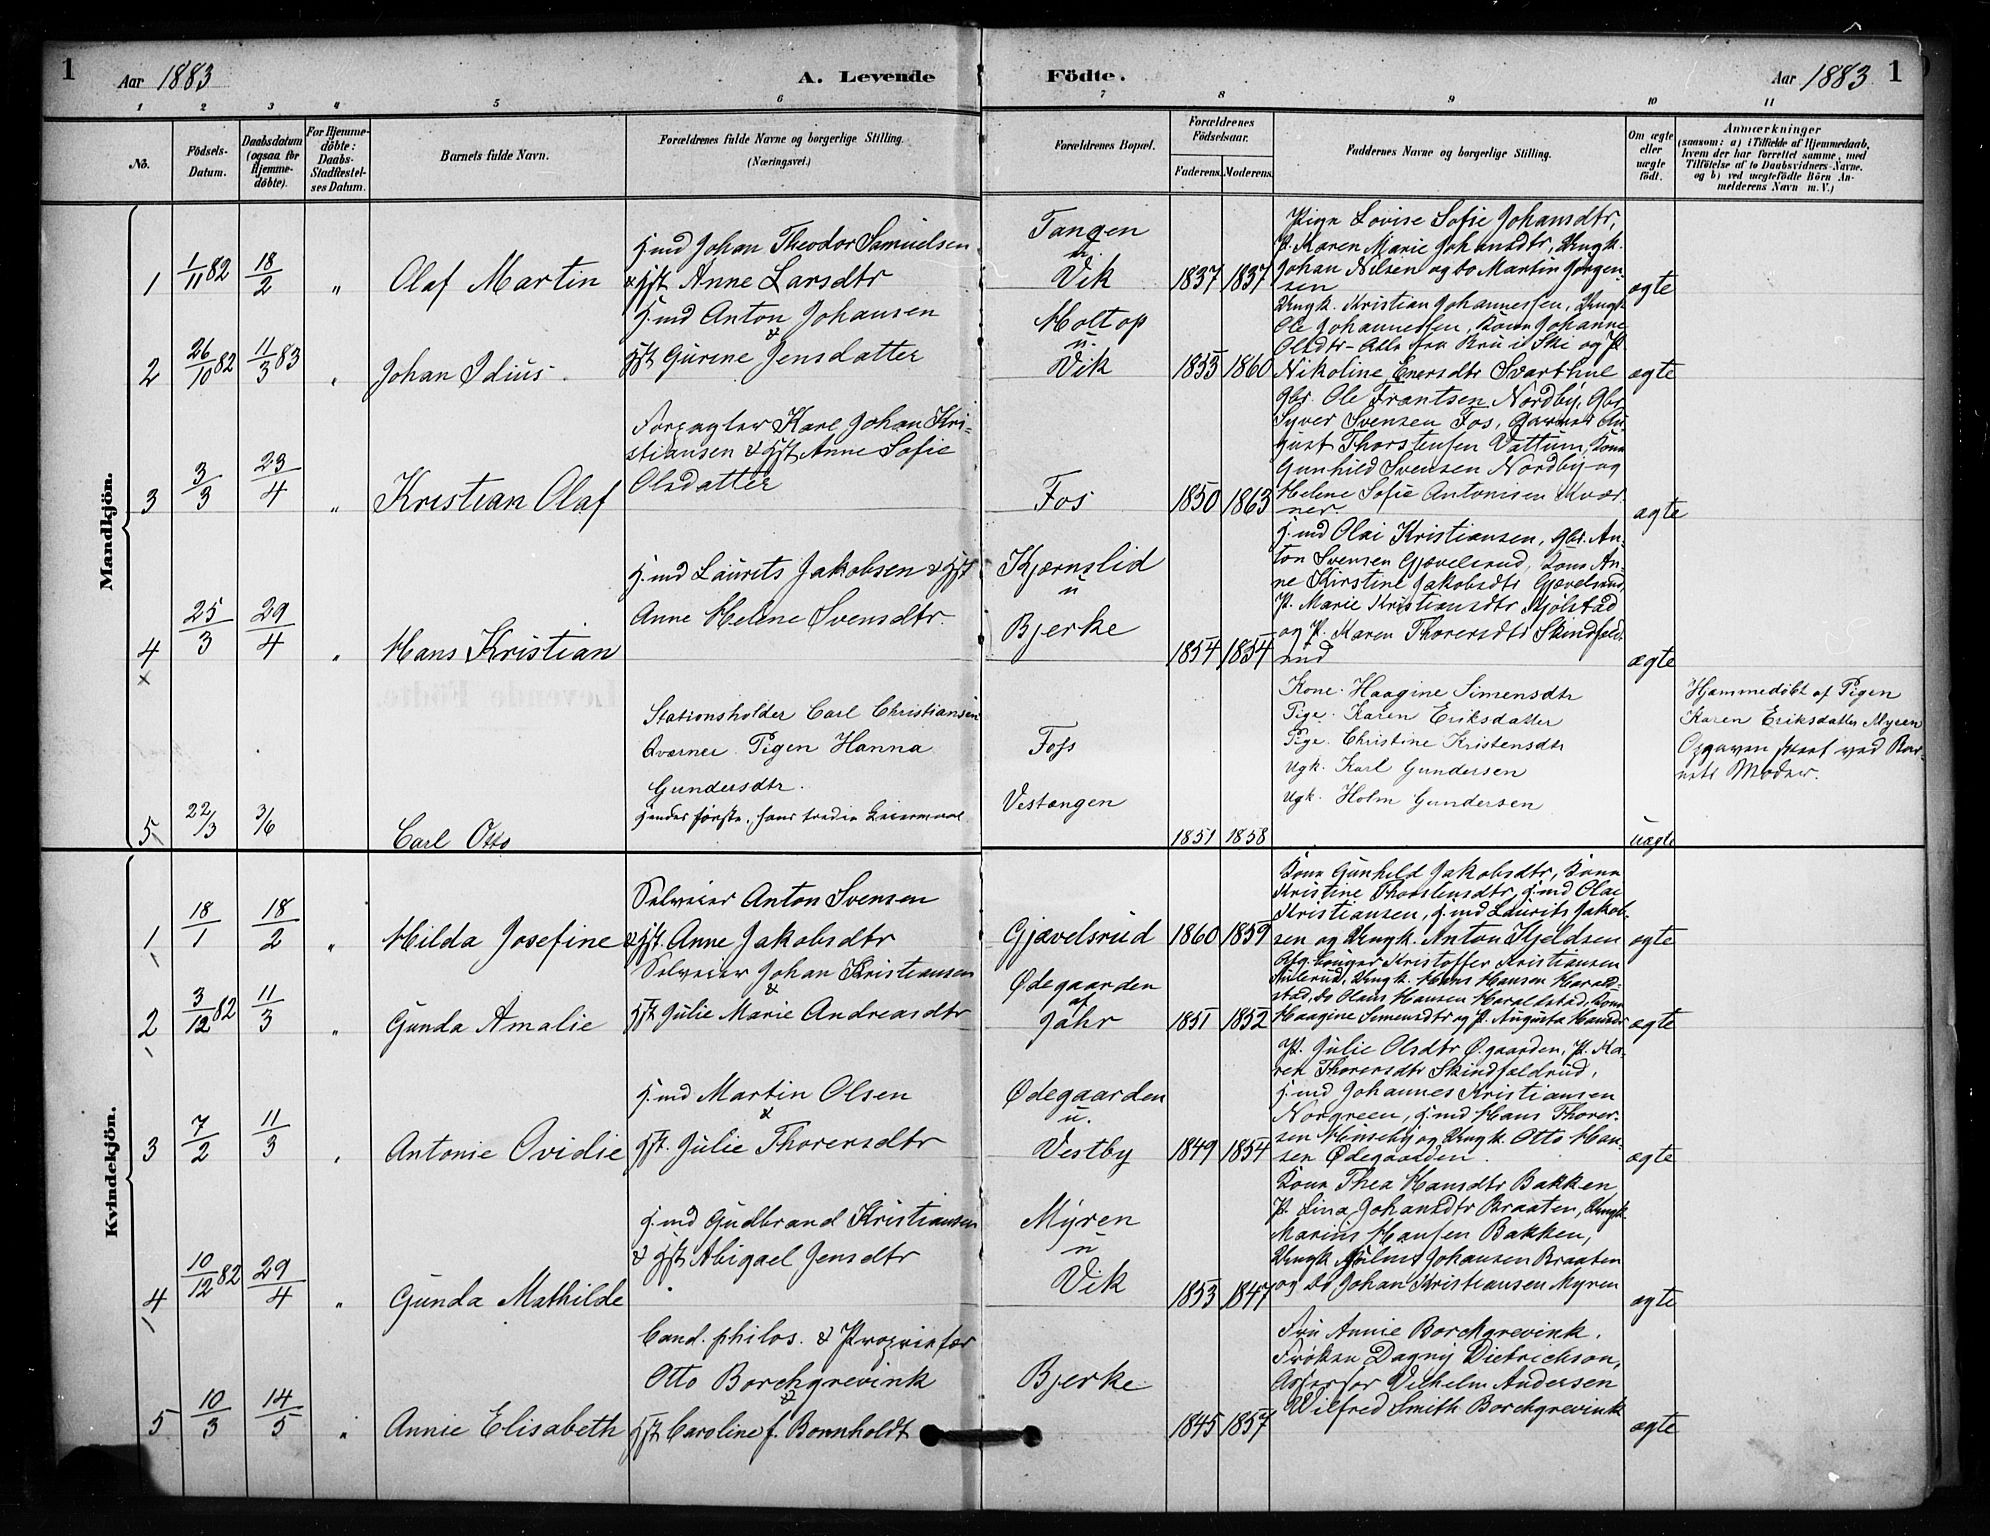 1
Aar 1883
A. Levende
Födte.
Aar 1883
1
1 2 3 4 5 6 7 8 9 10 11
No.
Födsels-
Datum.
Daabsdatum
(ogsaa for
Hjemme-
döbte).
For Hjemme-
döbte:
Daabs-
Stadfæstel-
ses Datum.
Barnets fulde Navn.
Forældrenes fulde Navne og borgerlige Stilling.
(Næringsvei.)
Forældrenes Bopæl.
Forældrenes
Födselsaar.
Faderens.
Moderens.
Faddernes Navne og borgerlige Stilling.
Om ægte
eller
uægte
födt.
Anmærkninger
(saasom: a) i Tilfælde af Hjemmedaab,
hvem der har forrettet samme, med
Tilföielse af to Daabsvidners Navne,
og b) ved uægtefödte Börn An-
melderens Navn m. V.)
Mandkjön.
1
1/11 82
18/2
"
Olaf Martin
H.md Johan Theodor Samuelsen
& Hst Anne Larsdtr
Tangen
u
Vik
1837
1837
Pige Lovise Sofie Johansdtr,
P. Karen Marie Johansdtr, Ungk.
Johan Nilsen og do Martin Jörgen-
sen
ægte
2
26/10 82
11/3 83
"
Johan Idius
H.md Anton Johansen
&
Hst Gurine Jensdatter
Moltop
u.
Vik
1853
1860
Ungk. Kristian Johannessen, Ungk.
Ole Johannessen, Kone Johanne
Olsdtr - Alle fra Kru i Ski og P.
Nikoline Enersdtr Svarthul
ægte
3
3/3
23/4
"
Kristian Olaf
Forpagter Karl Johan Kri-
stiansen & Hst Anne Sofie
Olsdatter
Fos
1850
1863
Gbr. Ole Frantsen Nordby, Gbr.
Syver Svensen Fos, Garver Au-
gust Thorstensen Vattum, Kone
Gunhild Svensen Nordby og
Helene Sofie Antonisen Kvær-
ner.
ægte
4
25/3
29/4
"
Hans Kristian
H.md Laurits Jakobsen & Hst
Anne Helene Svensdtr.
Kjernslid
u
Bjerke
1854
1854
H.md Olai Kristiansen, Gbr. An-
ton Svensen Gjævelsrud, Kone An-
ne Kirstine Jakobsdtr Gjævelsrud,
P. Marie Kristiansdtr Kjölstad
og P. Maren Thorersdtr Skindfeld-
rud
ægte
5
22/3
3/6
Carl Otto
Stationsholder Carl Christiansen
Qværner. Pigen Hanna
Gundersdtr.
Hendes første, hans tredie Leiermaal.
Foss
Vestengen
1851
1858
Kone. Haagine Simensdtr
Pige. Karen Eriksdatter
Pige. Christine Kristensdtr
Ugk. Karl Gundersen
Ugk. Holm Gundersen
uægte
Hjemmedøbt af Pigen
Karen Eriksdatter Myren
Opgaven skeet ved Bar-
nets Moder.
Kvindekjön.
1
18/1
18/2
"
Hilda Josefine
Selveier Anton Svensen
& Hst. Anne Jakobsdtr
Gjævelsrud
1860
1859
Kone Gunhild Jakobsdtr, Kone
Kristine Thorstensdtr, H.md Olai
Kristiansen, H.md Laurits Jakob-
sen og Ungk. Anton Kjeldsen
ægte
2
3/12 82
11/3
"
Gunda Amalie
Selveier Johan Kristiansen
&
Hst Julie Marie Andreasdtr
Ødegaarden
af
Jahr
1851
1852
Kristoffer Kristiansen
Ungk. Hans Hansen Harald-
stad, do Olaus Hansen Haraldstad, Kone
Haagine Simensdtr og P. Augusta Hansdtr
ægte
3
7/2
11/3
"
Antonie Ovidie
H.md Martin Olsen
&
Hst. Julie Thorersdtr
Ødegaarden
u.
Vestby
1849
1854
P. Julie Olsdtr Ø.gaarden, P. Ma-
ren Thorersdtr Skindfeldrud,
H.md Johannes Kristiansen
Norgreen, H.md Hans Thorer-
sen Hunseby og Ungk. Otto Han-
sen Ødegaarden.
ægte
4
10/12 82
29/4
"
Gunda Mathilde
H.md Gudbrand Kristiansen
& Hst Abigael Jensdtr
Myren
u
Vik
1853
1847
Kone Thea Hansdtr Bakken
P. Lina Johansdtr Braaten, Ungk.
Marius Hansen Bakken,
Ungk. Hilmer Johansen Braaten
og do Johan Kristiansen Myren
ægte
5
10/3
14/5
"
Annie Elisabeth
Cand. philos. & Proprietær
Otto Borchgrevink
&
Hst Caroline f. Bornholdt
Bjerke
1845
1857
Fru Annie Borchgrevink,
Frøken Dagny Dietrichson,
Assessor Vilhelm Andersen
Wilfred Smith Borchgrevink
ægte